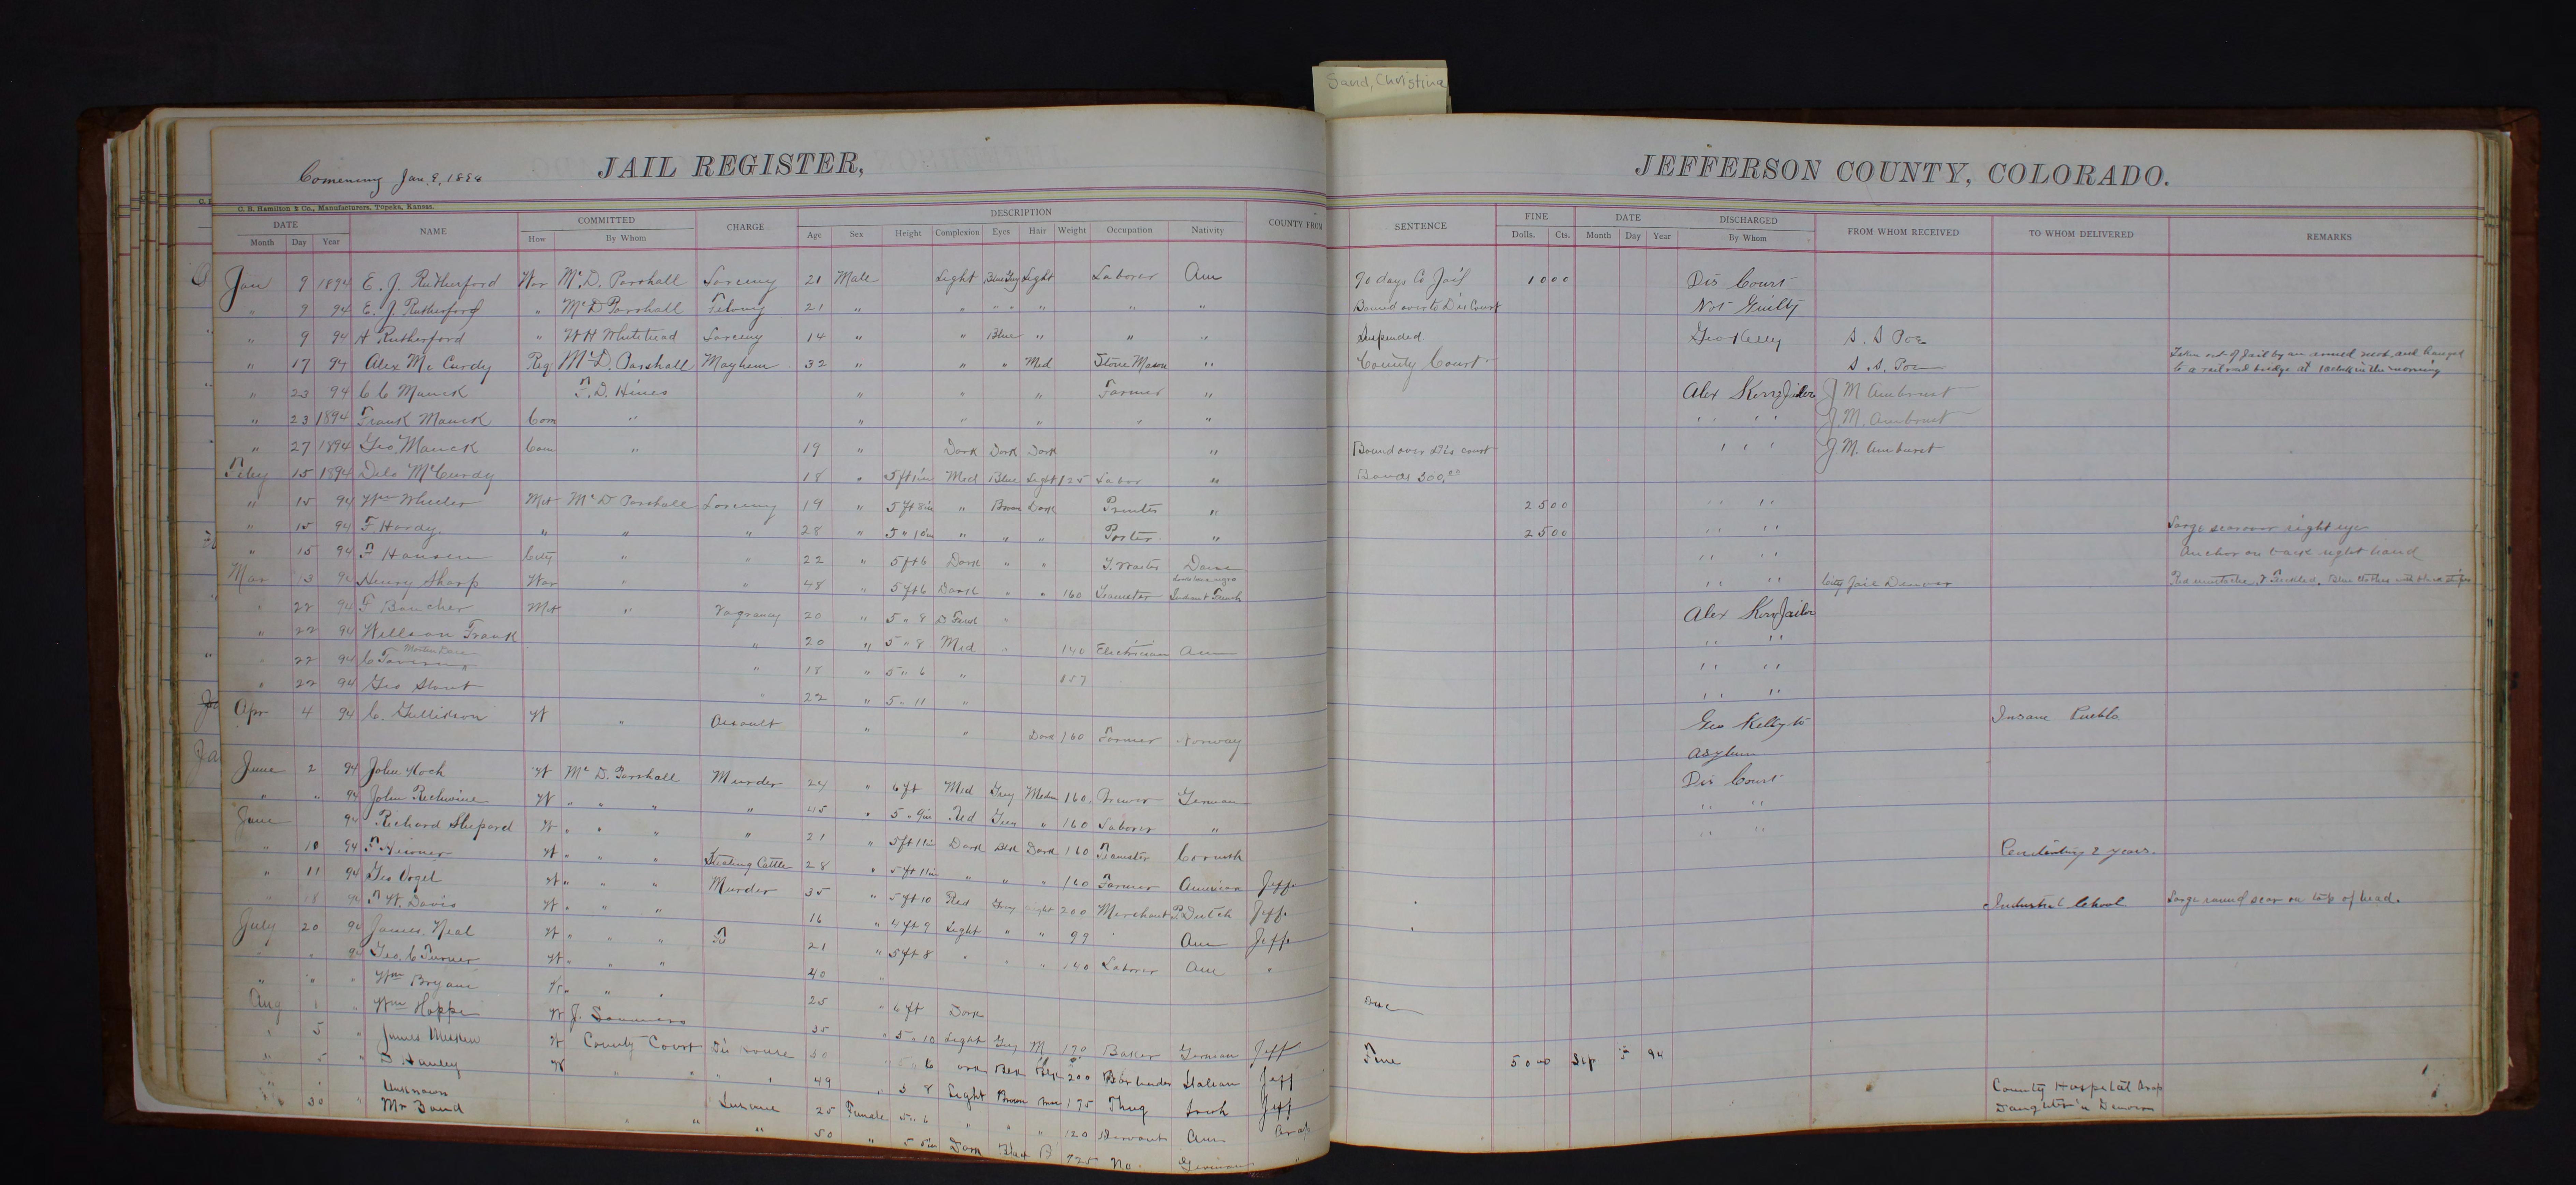 Sand, Christina
Comening Jan. 9, 1894
JAIL REGISTER,
JEFFERSON COUNTY, COLORADO.
C. B. Hamilton & Co., Manufacturers, Topeka, Kansas.
DATE NAME COMMITTED CHARGE DESCRIPTION COUNTY FROM SENTENCE FINE DATE DISCHARGED FROM WHOM RECEIVED TO WHOM DELIVERED REMARKS
Month Day Year How By Whom Age Sex Height Complexion Eyes Hair Weight Occupation Nativity Dolls. Cts. Month Day Year By Whom
Jan 9 1894 E. J. Rutherford War Mc. D. Parshall Larceny 21 Male Light Blue Grey Light Laborer Am 90 days Co Jail 10 00 Dis Court
" 9 94 E. J. Rutherford " Mc D Parshall Felony 21 " " " " " " " Bound over to Dis Court Not Guilty
" 9 94 A Rutherford " W H Whitehead Larceny 14 " " Blue " " " Suspended Geo Kelly S. S Poe
" 17 94 Alex Mc Curdy Reg Mc D. Parshall Mayhem 32 " " " Med Stone Mason " County Court S. S. Poe Taken out of Jail by an armed mob and hanged
to a railroad bridge at in the morning
" 23 94 C C Manck F. D. Hines " " " Farmer " Alex Kerr Jailer J M
" 23 1894 Frank Manck Com " " " " " " " " J. M.
" 27 1894 Geo. Manck Com " 19 " Dark Dark Dark " Bound over Dis court " " J. M. Amhurst
Feby 15 1894 Delo McCurdy 18 " Med Blue Light 125 Labor " Bonds 300.00
" 15 94 Wm Wheeler Mit Mc D Parshall Larceny 19 " 5 ft 8 in " Brown Dark Printer " 25 00 " "
" 15 94 F Hardy " " " 28 " 5 " 10 in " " " Porter " 25 00 " " Large scar over right eye
" 15 94 F Hansen City " " 22 " 5 ft 6 Dark " " Dane " " Anchor on back right hand
Mar 13 94 Henry Sharp War " " 48 " 5 ft 6 Dark " " 160 Teamster " " City Jail Denver Red mustache, & Freckled. Blue clothes with black stripes
" 22 94 F Boucher Mit " Vagrancy 20 " 5 " 8 Alex Kerr Jailer
" 22 94 Willson Frank " 20 " 5 " 8 Med " 140 Electrician Am " "
" 22 94 " 18 " 5 " 6 " 157 " "
" 22 94 Geo Stout " 22 " 5 " 11 " " "
Apr 4 94 C. Gullikson W " Assault " " Dark 160 Farmer Norway Geo Kelly to Insane Pueblo
Asylum
June 2 94 John Koch W Mc D. Parshall Murder 24 " 6 ft Med Grey Medm 160. German Dis Court
" " 94 John Richwine W " " " " 45 " 5 " 9 in Red Grey " 160 Laborer " " "
June 94 Richard Shepard W " " " " 21 " 5 ft 11 in Dark Dark 160 Teamster Cornish " "
" 10 94 W " " " Stealing Cattle 28 " 5 ft 11 in " " " 160 Farmer American Jeff. Penitentiary 2 years.
" 11 94 Geo Vogel W " " " Murder 35 " 5 ft 10 Red Grey Light 200 Merchant P. Dutch Jeff.
" 18 94 F. W. Davis W " " " 16 " 4 ft 9 Light " " 99 Am Jeff. Industrial School Large round scar on top of head.
July 20 94 James Neal W " " " 21 " 5 ft 8 " " " 140 Laborer Am "
" " 94 Geo. C Turner W " " " 40 "
" " " Wm Bryant W " " " 25 " 6 ft Dark
Aug 1 " Wm Hoppe W J. Sommers 35 " 5 " 10 Light Grey M 170 Baker German Jeff
" 5 " James W County Court 30 " 6 Blk Blk 200 Bar tender Italian Jeff Fine 50 00 Sep 94
" 5 " D Hanley W " " " 49 " 5 8 Light Brown 175 Thug Irish Jeff
" " Unknown Insane 25 Female 5 " 6 " " " 120 Servant Am County Hospital
30 " Mr Sand " " " 50 " 5 5 in Dark No. German " Daughter in Denver